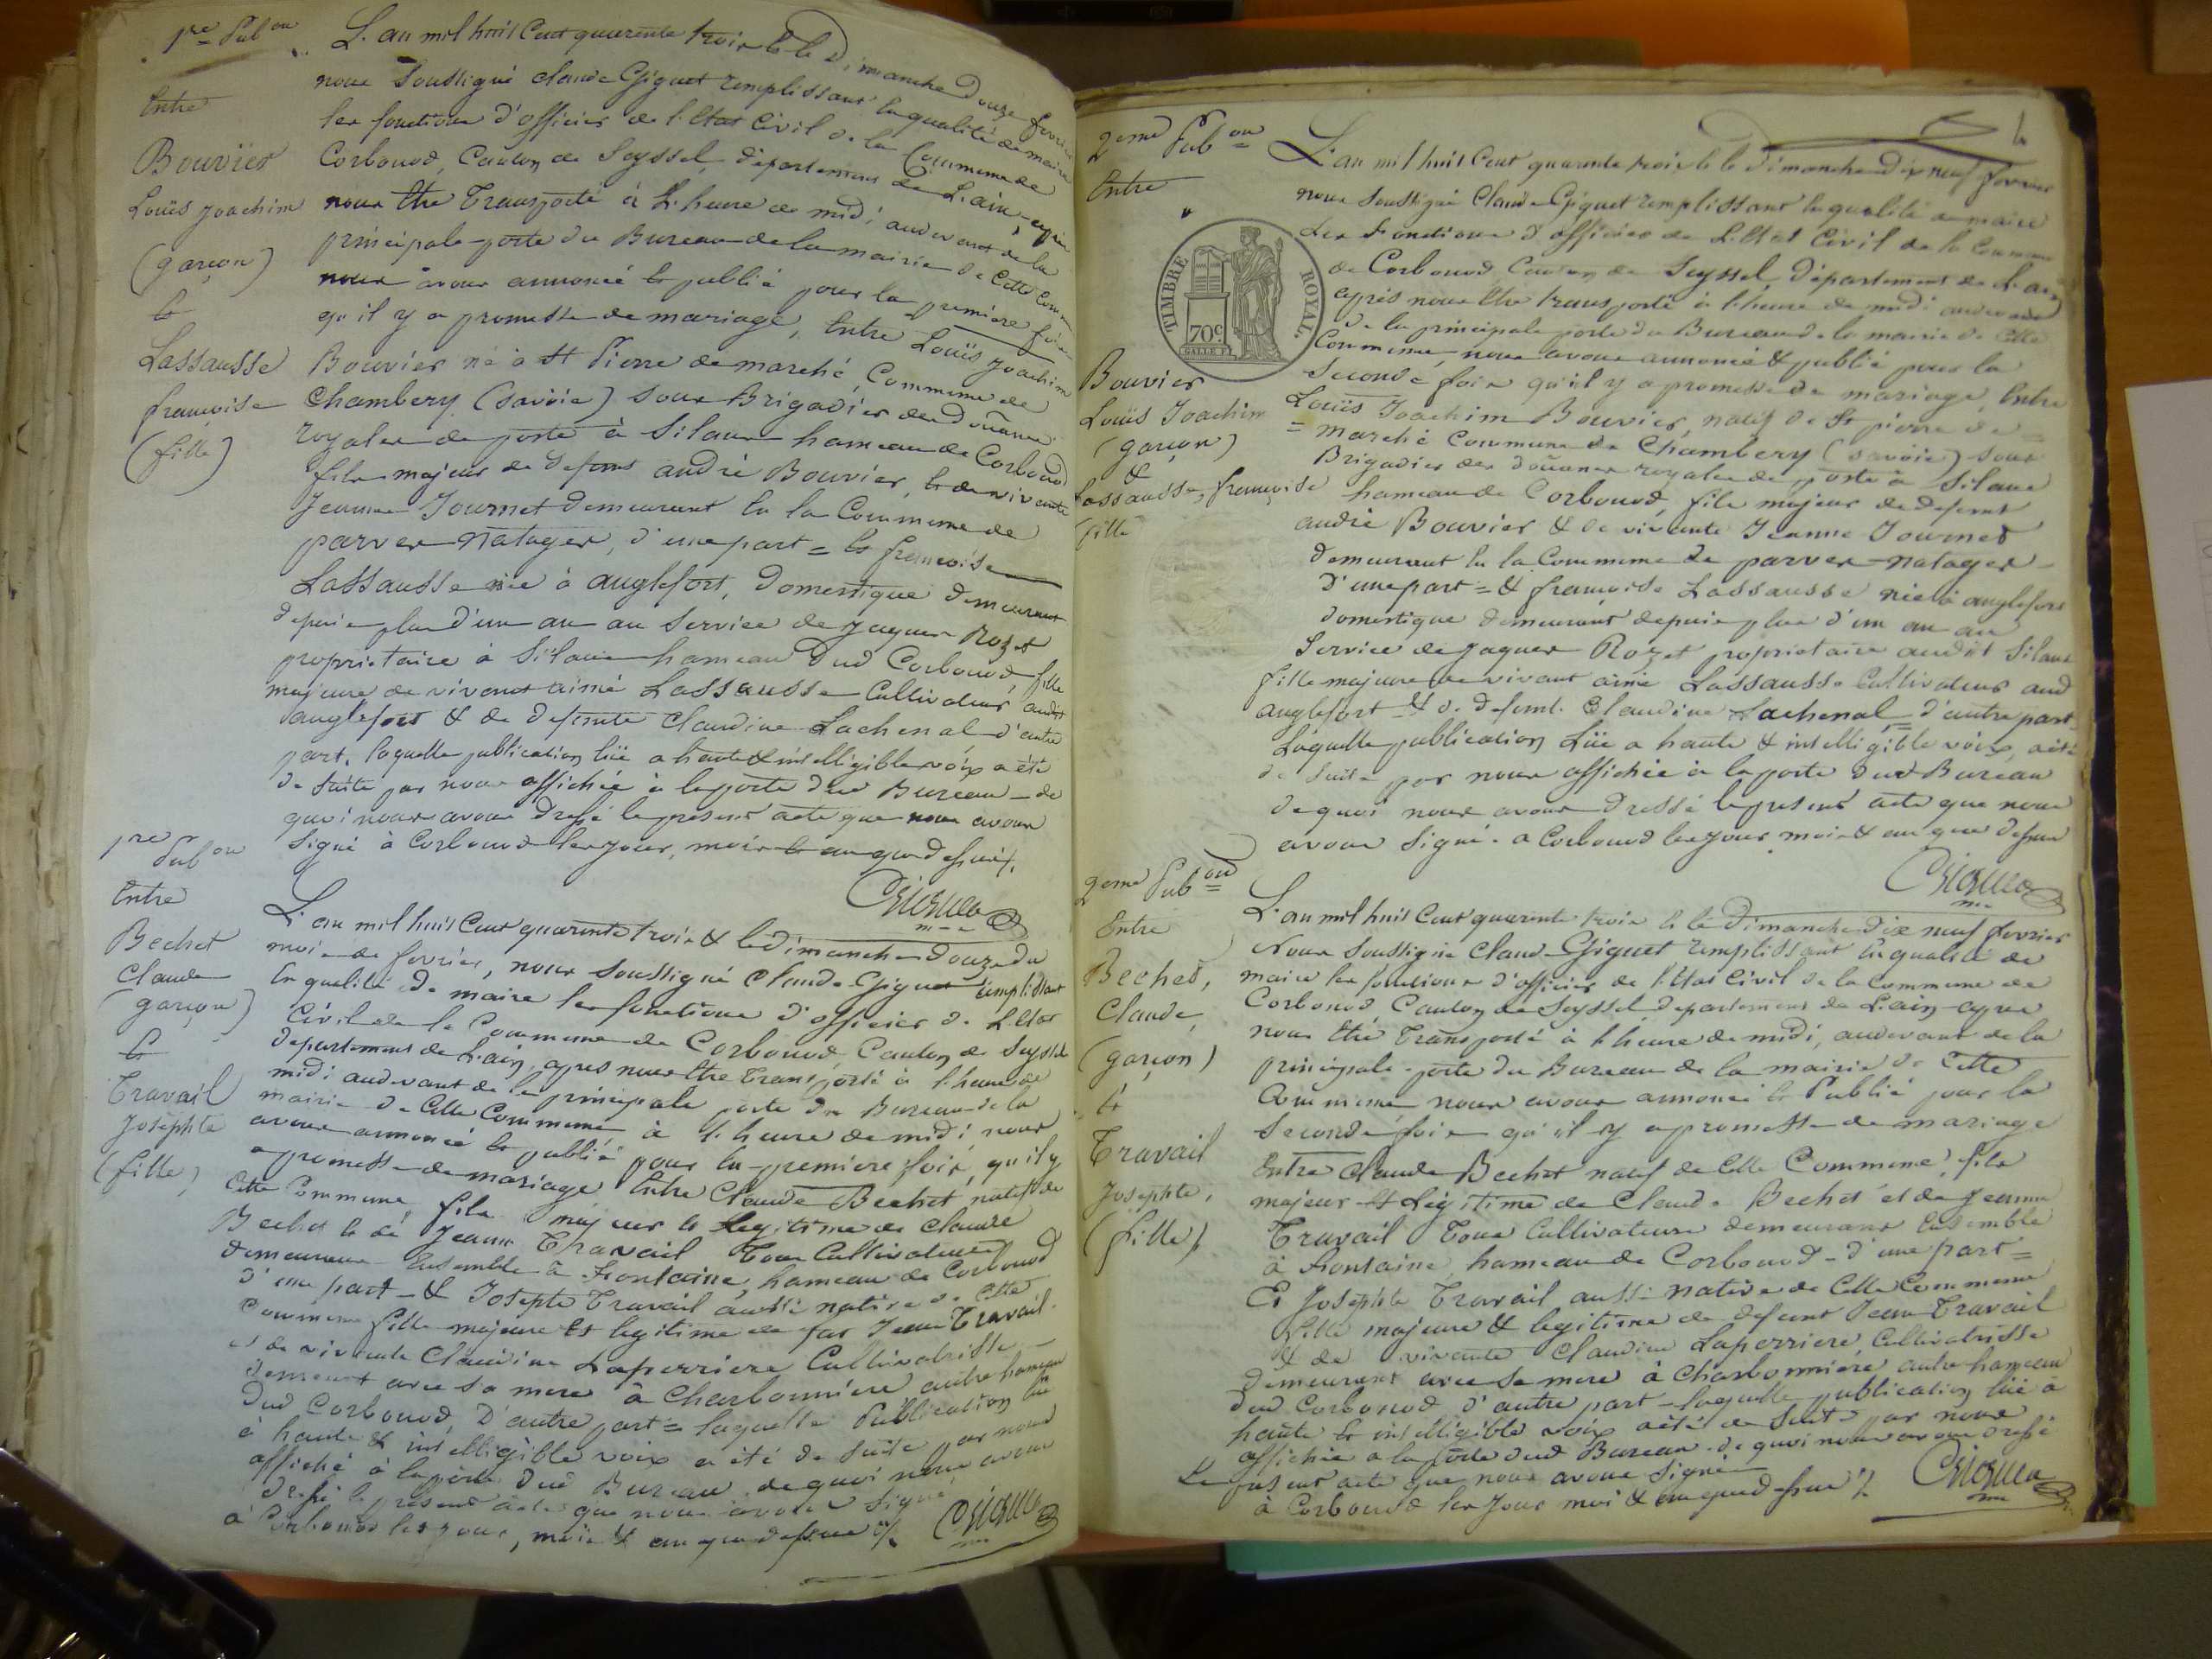 1re Pubon
Entre
Bouvier
Louïs Joachim
(garçon)
&
Lassausse
françoise
(fille)
L'an mil huit Cent quarente trois & le Dimanche Douze fevrier
nous Soussigné Claude Giguet remplissant en qualité de maire
les fonctions d'officier de l'Etat Civil de la Commune de
Corbonod, Canton de Seyssel, département de L'ain, après
nous être Transporté à l'heure de midi audevant de la
principale porte du Bureau de la mairie de Cette Commune
nous avons annoncé & publié pour la premiere fois
qu'il y a promesse de mariage, Entre Louïs Joachim
Bouvier né à St Pierre de marché, Commune de
Chambery (Savoie) Sous Brigadier des douanes
royales de poste à Silans hameau de Corbonod
fils majeur de defunt andré Bouvier, & de vivante
Jeanne Journet demeurant en la Commune de
parves-Natager, d'une part = & françoise
Lassausse née à anglefort, Domestique demeurant
depuis plus d'un an au Service de Jaques Rozet
proprietaire à Silans hameau dud Corbonod, fille
majeure de vivant aimé Lassausse Cultivateur audit
anglefort & de defunte Claudine Lachenal d'autre
part, laquelle publication lüe a haute & intelligible voix a été
de Suite par nous affichée à la porte dud Bureau - de
quoi nous avons dressé le present acte que nous avons
Signé à Corbonod les jour, mois & an que dessus ./.
1re Pubon
Entre
Bechet
Claude
(garçon)
&
Travail
Josephte
(fille)
L'an mil huit Cent quarente trois & le dimanche douze du
mois de fevrier, nous Soussigné Claude Giguet remplissant
en qualité de maire les fonctions d'officier de l'Etat
Civil de la Commune de Corbonod Canton de Seyssel
departement de L'ain, apres nous être Transporté à l'heure de
midi audevant de la principale porte du Bureau de la
mairie de Cette Commune à l'heure de midi nous
avons annoncé & publié pour la premiere fois, qu'il y
a promesse de mariage Entre Claude Bechet natif de
Cette Commune, fils majeur & Legitime de Claude
Bechet & de Jeanne Travail Tous Cultivateurs
demeurans Ensemble à Fontaine, hameau de Corbonod
d'une part - & Josephte Travail aussi native de Cette
Commune fille majeure & legitime de feu Jean Travail
et de vivante Claudine Laperriere Cultivatrisse
demeurant avec Sa mere à Charbonniere autre hameau
Dud Corbonod, D'autre part = laquelle Publication lüe
à haute & intelligible voix a été de Suite par nous
affiché à la porte dud Bureau de quoi nous avons
dressé le present acte que nous avons Signé
à Corbonod les jour, mois & an que dessus ./.
2eme Pubon
Entre
TIMBRE ROYAL.
70c
Bouvier
Louïs Joachim
(garçon)
&
Lassausse, françoise
fille
L'an mil huit Cent quarente trois & le Dimanche dix neuf fevrier
nous Soussigné Claude Giguet remplissant en qualité de maire
Les Fonctions d'officier de l'Etat Civil de la Commune
de Corbonod Canton de Seyssel, département de L'ain
après nous être transporté à l'heure de midi audevant
de la principale porte du Bureau de la mairie de Cette
Commune, nous avons annoncé & publié pour la
Seconde fois qu'il y a promesse de mariage, Entre
Louïs Joachim Bouvier, natif de St pierre de
= marché Commune de Chambery (Savoie) Sous
Brigadier des douanes royales de poste à Silans
hameau de Corbonod, fils majeur de defunt
andré Bouvier & de vivante Jeanne Journet
demeurant en la Commune de parves-Natager -
D'une part = & françoise Lassausse née à anglefort
domestique demeurant depuis plus d'un an au
Service de Jaques Rozet proprietaire audit Silans
fille majeure de vivant aimé Lassausse Cultivateur aud
anglefort & de defunte Claudine Lachenal = d'autre part
Laquelle publication Lüe a haute & intelligible voix, a été
de Suite par nous affichée à la porte dud Bureau
de quoi nous avons dressé le present acte que nous
avons Signé. a Corbonod les jour mois & an que dessus
2eme Pubon
Entre
Bechet,
Claude
(garçon)
&
Travail
Josephte,
(fille)
L'an mil huit Cent quarente trois & le dimanche dix neuf fevrier
Nous Soussigné Claude Giguet remplissant en qualité de
maire les fonctions d'officier de l'Etat Civil de la Commune de
Corbonod, Canton de Seyssel departement de L'ain - apres
nous être Transporté à l'heure de midi, audevant de la
principale porte du Bureau de la mairie de Cette
Commune nous avons annoncé & Publié pour la
Seconde fois qu'il y a promesse de mariage
Entre Claude Bechet natif de Cette Commune, fils
majeur & Légitime de Claude Bechet et de Jeanne
Travail Tous Cultivateurs demeurans Ensemble
à Fontaine, hameau de Corbonod - d'une part =
Et Josephte Travail aussi native de Cette Commune
fille majeure & legitime de defunt Jean Travail
& de vivante Claudine Laperriere, Cultivatrisse
demeurant avec Sa mere à Charbonniere autre hameau
dud Corbonod d'autre part - laquelle publication lüe à
haute & intelligible voix a été de Suite par nous
affichée a la porte dud Bureau. de quoi nous avons dressé
Le present acte que nous avons Signé
à Corbonod les jour moi & an que dessus ./.